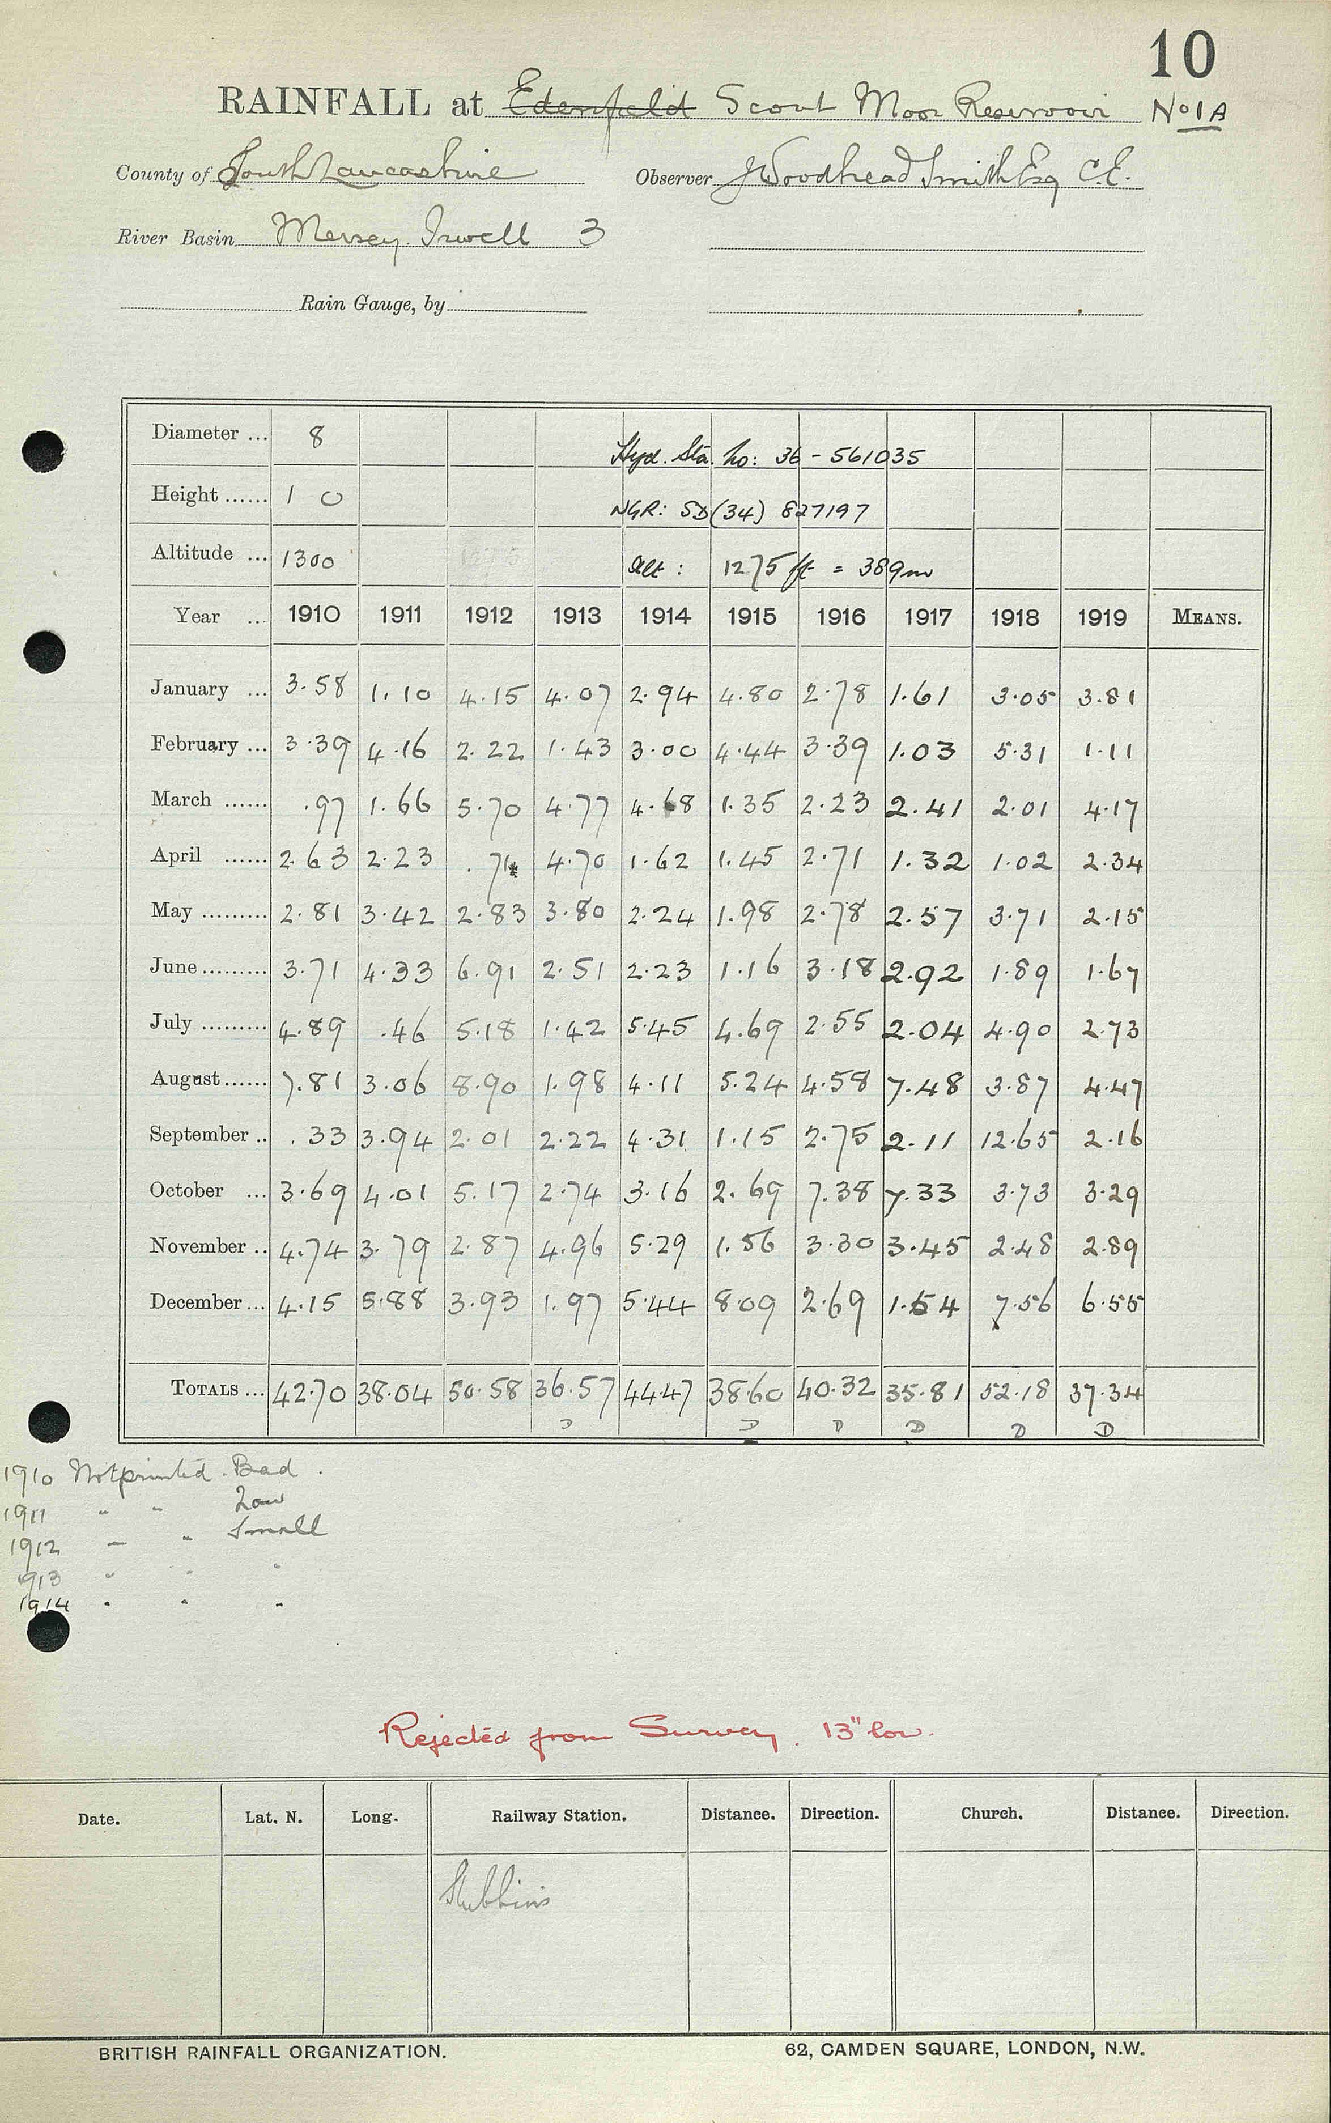 10
RAINFALL at Edenfield Scout Moor Reservoir No 1A
County of South Lancashire Observer J Woodhead Smith Esq C.E.
River Basin Mersey. Irwell 3
Rain Gauge, by
Diameter ... 8 Hyd. Sta. No: 36 - 561035
Height ...... 1 0 NGR: SD (34) 827197
Altitude ... 1300 Alt : 1275 ft = 389m
Year ... 1910 1911 1912 1913 1914 1915 1916 1917 1918 1919 MEANS.
January ... 3.58 1.10 4.15 4.07 2.94 4.80 2.78 1.61 3.05 3.81
February ... 3.39 4.16 2.22 1.43 3.00 4.44 3.39 1.03 5.31 1.11
March ...... .97 1.66 5.70 4.77 4.68 1.35 2.23 2.41 2.01 4.17
April ...... 2.63 2.23 .71 4.70 1.62 1.45 2.71 1.32 1.02 2.34
May ......... 2.81 3.42 2.83 3.80 2.24 1.98 2.78 2.57 3.71 2.15
June ......... 3.71 4.33 6.91 2.51 2.23 1.16 3.18 2.92 1.89 1.67
July ......... 4.89 .46 5.18 1.42 5.45 4.69 2.55 2.04 4.90 2.73
August ...... 7.81 3.06 8.90 1.98 4.11 5.24 4.58 7.48 3.87 4.47
September .. .33 3.94 2.01 2.22 4.31 1.15 2.75 2.11 12.65 2.16
October ... 3.69 4.01 5.17 2.74 3.16 2.69 7.38 7.33 3.73 3.29
November .. 4.74 3.79 2.87 4.96 5.29 1.56 3.30 3.45 2.48 2.89
December ... 4.15 5.88 3.93 1.97 5.44 8.09 2.69 1.54 7.56 6.55
TOTALS ... 42.70 38.04 50.58 36.57 44.47 38.60 40.32 35.81 52.18 37.34
D D D D D D
1910 Not printed. Bad.
1911 " " Low
1912 " " Small
1913 " " "
1914 " " "
Rejected from Survey. 13" low.
Date. Lat. N. Long. Railway Station. Distance. Direction. Church. Distance. Direction.
Stubbins
BRITISH RAINFALL ORGANIZATION. 62, CAMDEN SQUARE, LONDON, N.W.